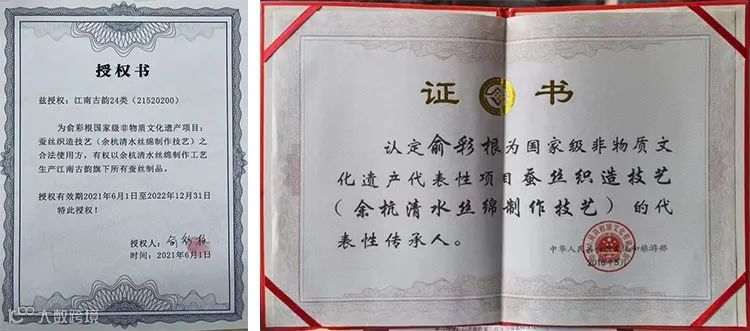 授权书
兹授权：江南古韵24类（21520200）
为俞彩根国家级非物质文化遗产项目：
蚕丝织造技艺（余杭清水丝绵制作技艺）之
合法使用方，有权以余杭清水丝绵制作工艺
生产江南古韵旗下所有蚕丝制品。
授权有效期2021年6月1日至2022年12月31日
特此授权！
授权人：俞彩根
时间：2021年6月1日
大数跨境
证书
认定俞彩根为国家级非物质文
化遗产代表性项目蚕丝织造技艺
（余杭清水丝绵制作技艺）的代
表性传承人。
中华人民共和国文化和旅游部
2018年5月